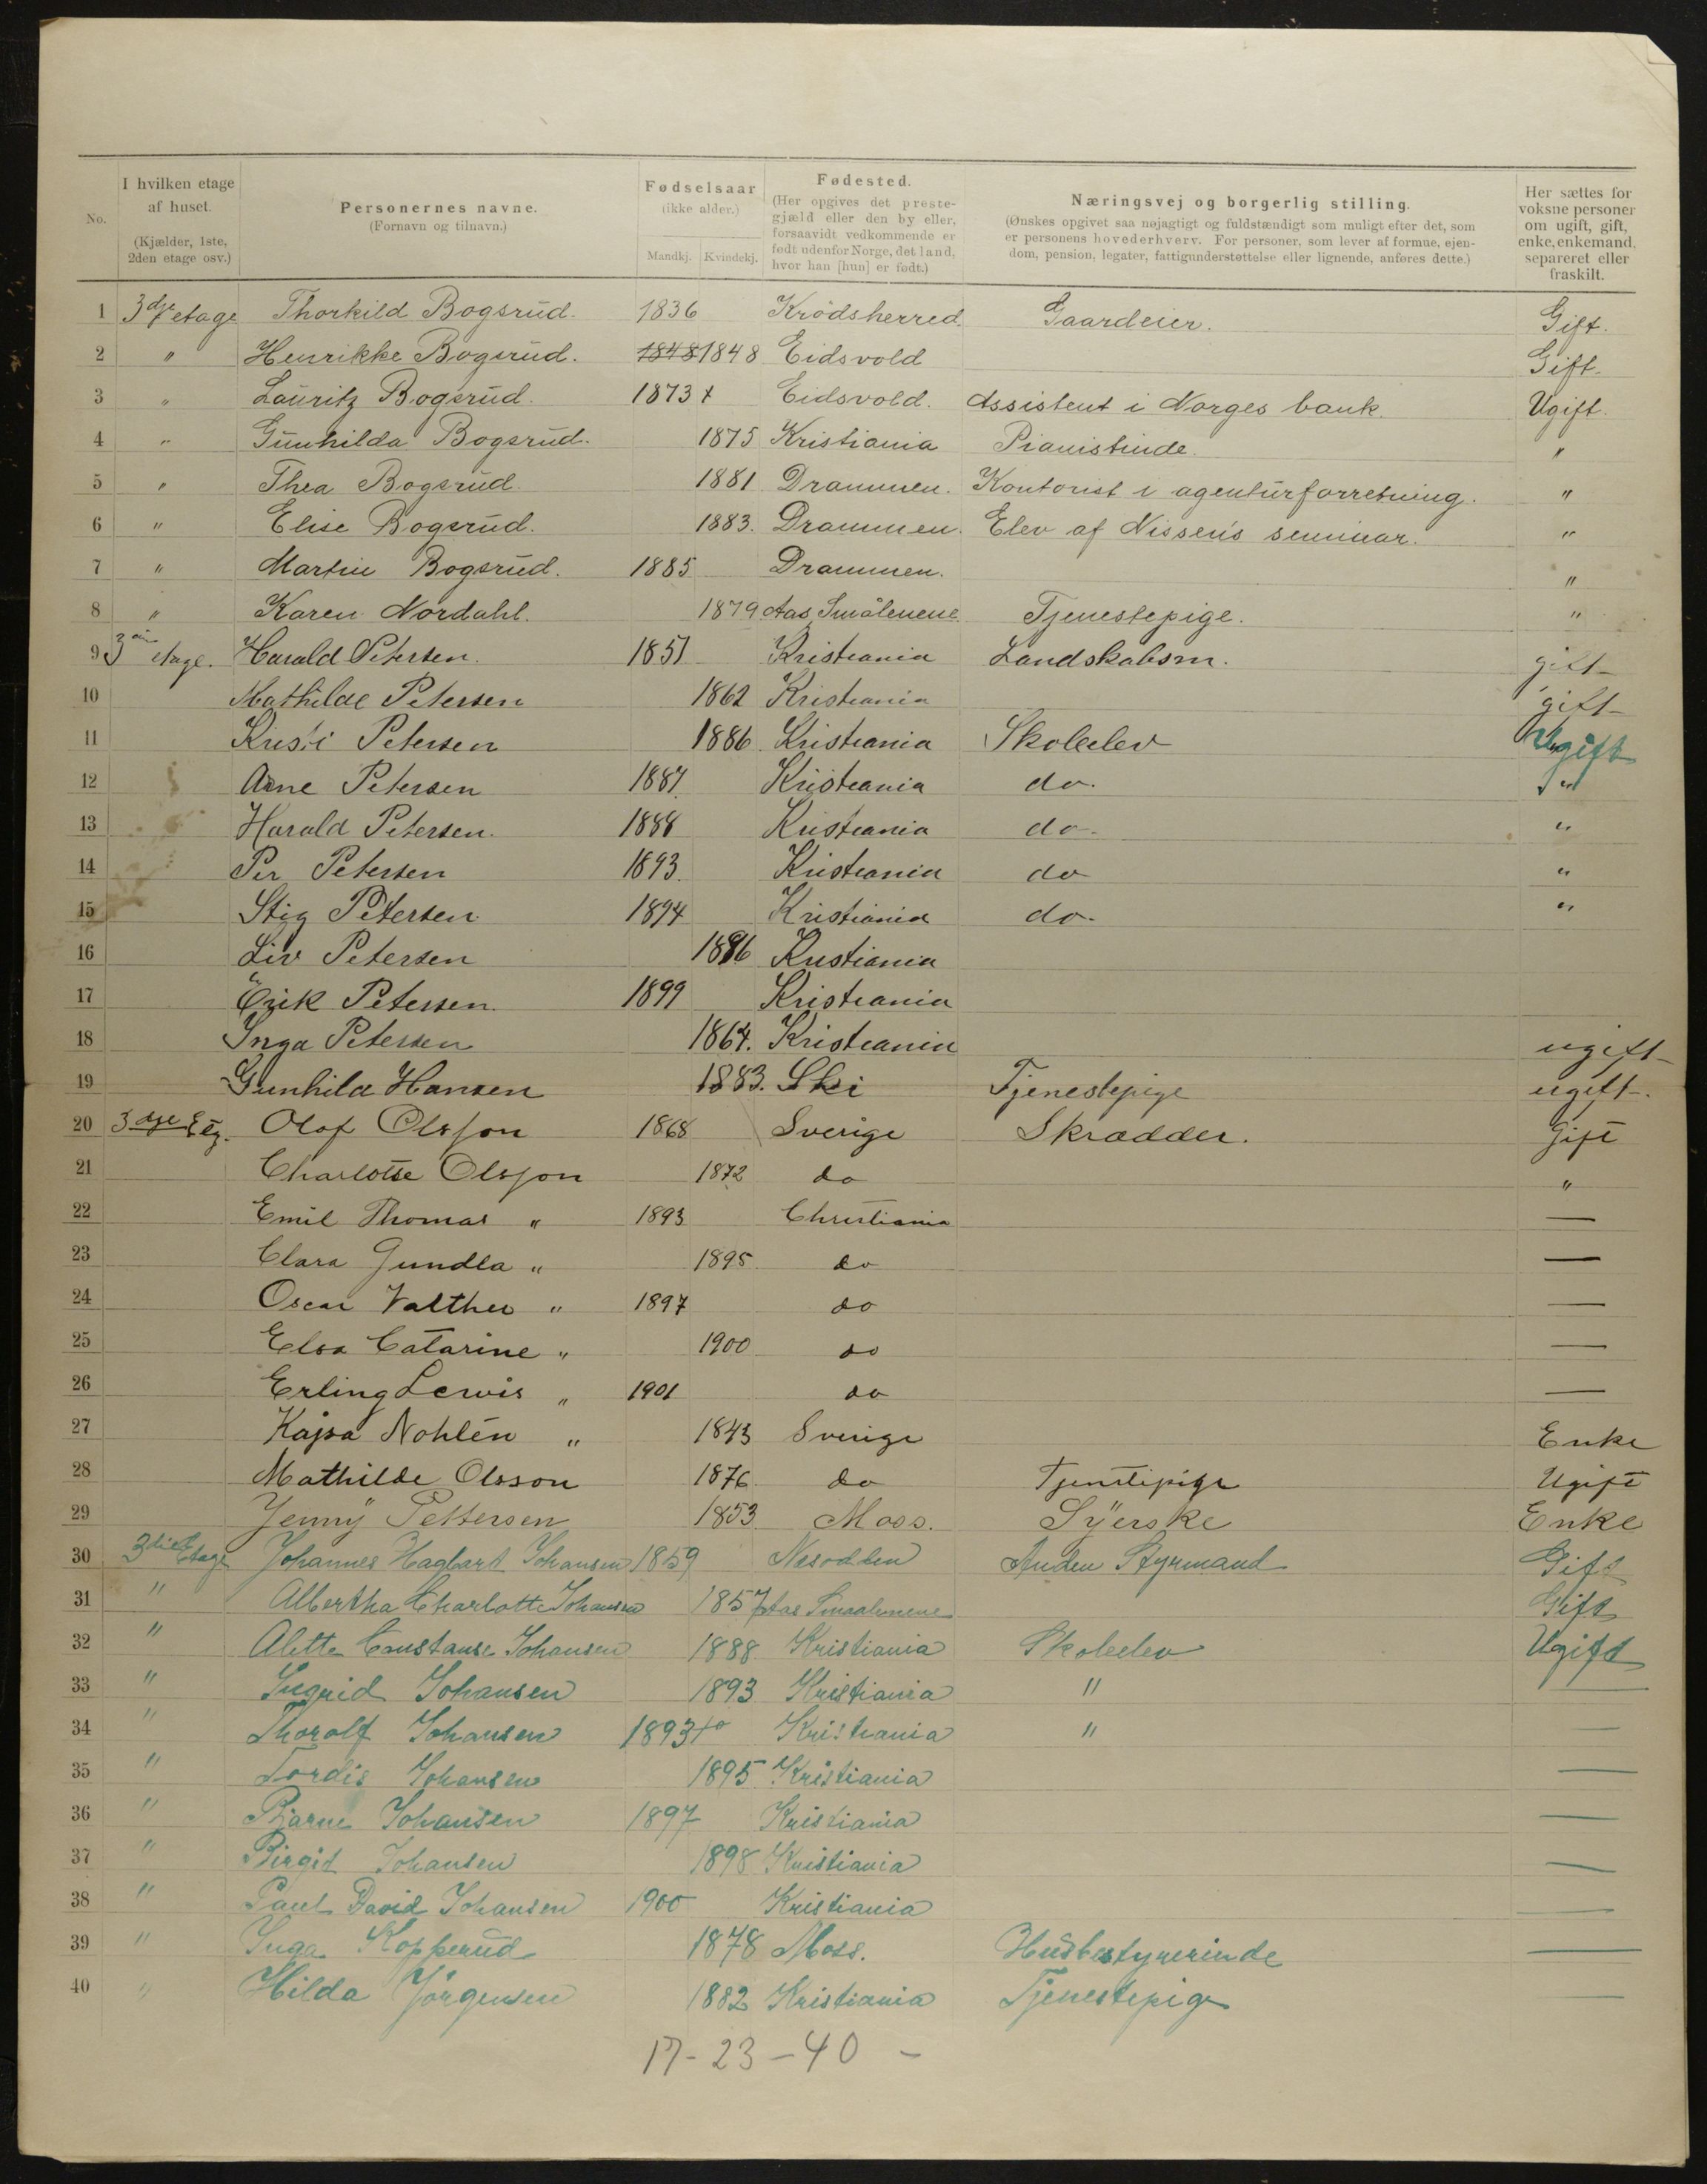 No.
I hvilken etage af huset. (Kjælder, 1ste, 2den etage osv.)
Personernes navne. (Fornavn og tilnavn.)
Fødselsaar (ikke alder.) Mandkj. Kvindekj.
Fødested. (Her opgives det preste-gjæld eller den by eller, forsaavidt vedkommende er født udenfor Norge, det land, hvor han [hun] er født.)
Næringsvej og borgerlig stilling. (Ønskes opgivet saa nøjagtigt og fuldstændigt som muligt efter det, som er personens hovederhverv. For personer, som lever af formue, ejendom, pension, legater, fattigunderstøttelse eller lignende, anføres dette.)
Her sættes for voksne personer om ugift, gift, enke, enkemand, separeret eller fraskilt.
1 3dje etage Thorkild Bogsrud. 1836 Krödsherred. Gaardeier. Gift.
2 " Henrikke Bogsrud. 1848 1848 Eidsvold Gift.
3 " Lauritz Bogsrud. 1873 x Eidsvold. Assistent i Norges bank. Ugift.
4 " Gunhilda Bogsrud. 1875 Kristiania Pianistinde. "
5 " Thea Bogsrud. 1881 Drammen. Kontorist i agenturforretning. "
6 " Elise Bogsrud. 1883. Drammen. Elev af Nissens seminar. "
7 " Martin Bogsrud. 1885 Drammen. "
8 " Karen Nordahl. 1879 Aas Smålenene. Tjenestepige. "
9 3die etage. Harald Petersen. 1851 Kristiania Landskabsm. gift
10 Mathilde Petersen 1862 Kristiania gift
11 Kristi Petersen 1886. Kristiania Skoleelev Ugift
12 Arne Petersen 1887. Kristiania do. "
13 Harald Petersen. 1888 Kristiania do. "
14 Per Petersen 1893. Kristiania do "
15 Stig Petersen. 1894 Kristiania do. "
16 Liv Petersen 1896 Kristiania
17 Erik Petersen. 1899 Kristiania
18 Inga Petersen 1864. Kristiania ugift
19 Gunhild Hansen 1883. Ski Tjenestepige ugift.
20 3dje Etg. Olof Olsson 1868 Sverige Skrædder. Gift
21 Charlotte Olsson 1872 do "
22 Emil Thomas " 1893 Christiania —
23 Clara Gundla " 1895. do —
24 Oscar Valther " 1897 do —
25 Elsa Catarine " 1900 do —
26 Erling Lewis " 1901 do —
27 Kajsa Nohlén " 1843 Sverige Enke
28 Mathilde Olsson 1876. do Tjenstepige Ugift
29 Jenny Pettersen 1853 Moss. Syerske Enke
30 3die Etage Johannes Hagbart Johansen 1859 Nesodden Anden Styrmand Gift
31 " Albertha Charlotte Johansen 1857 Aas Smaalenene Gift
32 " Alette Constanse Johansen 1888 Kristiania Skoleelev Ugift
33 " Ingrid Johansen 1893 Kristiania " —
34 " Thorolf Johansen 1893 Kristiania " —
35 " Tordis Johansen 1895 Kristiania —
36 " Bjarne Johansen 1897 Kristiania —
37 " Birgit Johansen 1898 Kristiania —
38 " Paul David Johansen 1900 Kristiania —
39 " Inga Kopperud 1878 Moss. Husbestyrerinde —
40 " Hilda Jörgensen 1882 Kristiania Tjenestepige —
17 - 23 - 40 -